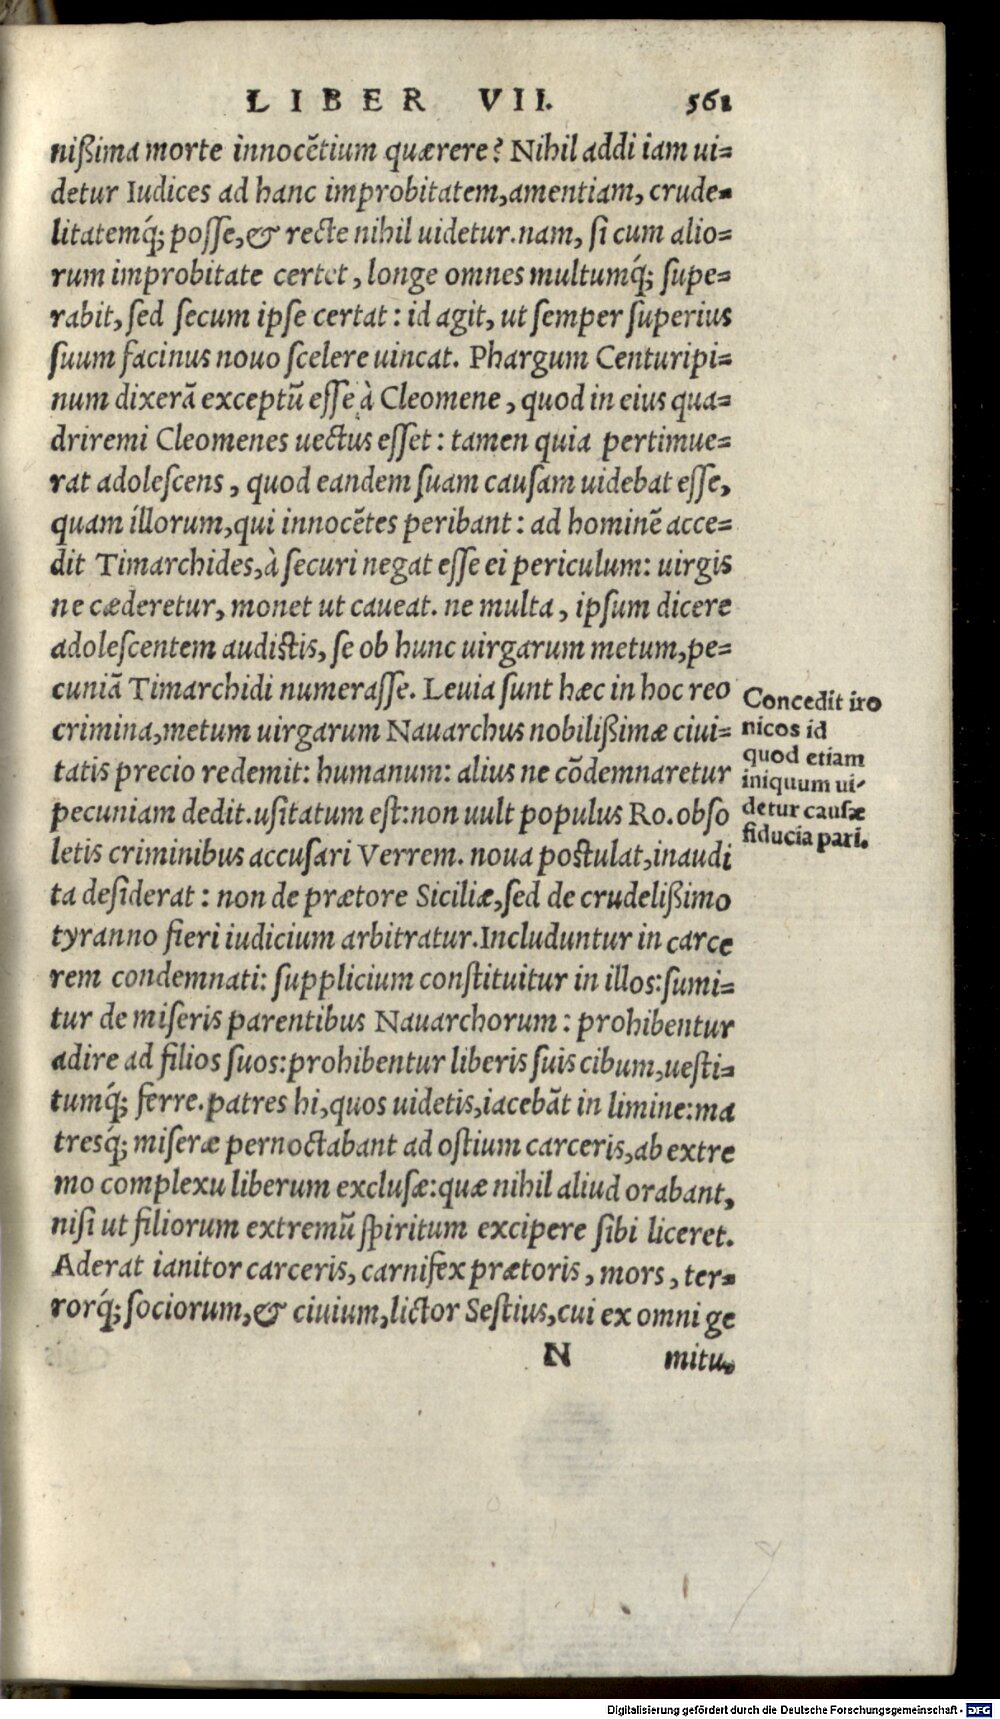 LIBER VII. 561
nißima morte innocẽtium quærere? Nihil addi iam ui=
detur Iudices ad hanc improbitatem,amentiam, crude=
litatemq́; posse,& recte nihil uidetur.nam, si cum alio=
rum improbitate certet, longe omnes multumq́; supe=
rabit, sed secum ipse certat: id agit, ut semper superius
suum facinus nouo scelere uincat. Phargum Centuripi=
num dixerã exceptũ esse à Cleomene, quod in eius qua=
driremi Cleomenes uectus esset: tamen quia pertimue=
rat adolescens, quod eandem suam causam uidebat esse,
quam illorum,qui innocẽtes peribant: ad hominẽ acce=
dit Timarchides,à securi negat esse ei periculum: uirgis
ne cæderetur, monet ut caueat. ne multa, ipsum dicere
adolescentem audistis, se ob hunc uirgarum metum,pe=
cuniã Timarchidi numerasse. Leuia sunt hæc in hoc reo
crimina,metum uirgarum Nauarchus nobilißimæ ciui=
tatis precio redemit: humanum: alius ne cõdemnaretur
pecuniam dedit.usitatum est:non uult populus Ro.obso
letis criminibus accusari Verrem. noua postulat,inaudi
ta desiderat: non de prætore Siciliæ,sed de crudelißimo
tyranno fieri iudicium arbitratur.Includuntur in carce
rem condemnati: supplicium constituitur in illos:sumi=
tur de miseris parentibus Nauarchorum: prohibentur
adire ad filios suos:prohibentur liberis suis cibum,uesti=
tumq́; ferre.patres hi,quos uidetis,iacebãt in limine:ma
tresq́; miseræ pernoctabant ad ostium carceris,ab extre
mo complexu liberum exclusæ:quæ nihil aliud orabant,
nisi ut filiorum extremũ spiritum excipere sibi liceret.
Aderat ianitor carceris, carnifex prætoris, mors, ter=
rorq́; sociorum,& ciuium,lictor Sestius,cui ex omni ge
N mitu.
Concedit iro
nicos id
quod etiam
iniquum ui-
detur causæ
fiducia pari.
Digitalisierung gefördert durch die Deutsche Forschungsgemeinschaft - DFG